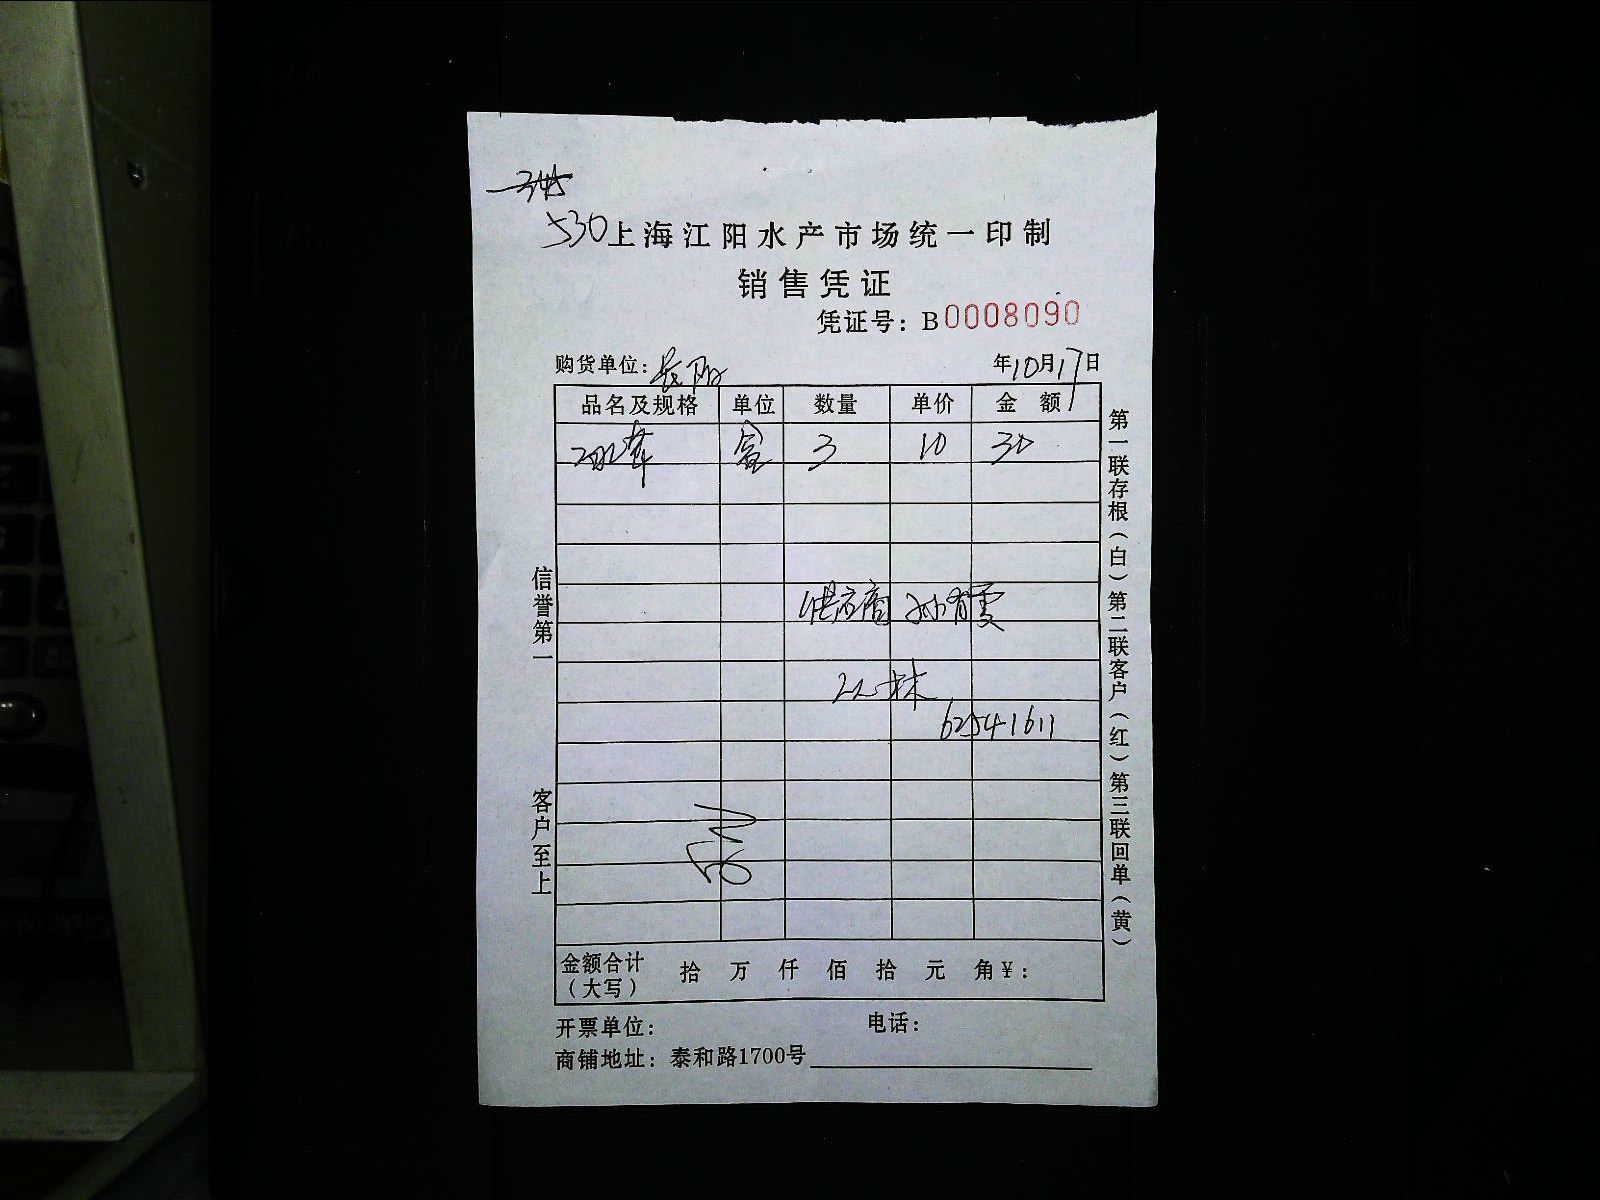 345
530
上海江阳水产市场统一印制
销售凭证
凭证号：B0008090
购货单位：长阳 年10月17日
品名及规格 单位 数量 单价 金额
盒 3 10 30
供应商 孙有雯
62541611
信誉第一
客户至上
第一联存根（白）第二联客户（红）第三联回单（黄）
金额合计（大写） 拾 万 仟 佰 拾 元 角¥：
开票单位： 电话：
商铺地址：泰和路1700号